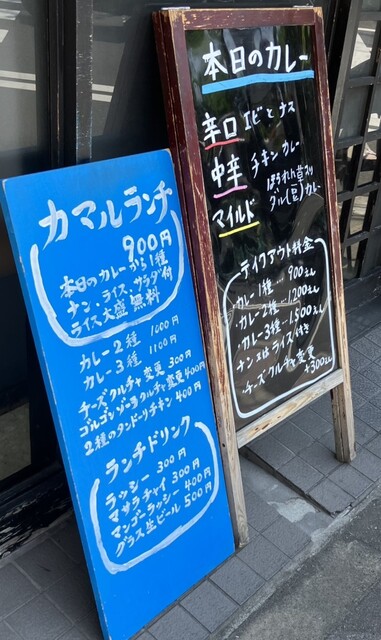 カマルランチ
900円
本日のカレーから1種
ナン、ライス、サラダ付
ライス大盛 無料
カレー2種 1000円
カレー3種 1100円
チーズクルチャ変更 300円
ゴルゴンゾーラクルチャ変更400円
2種のタンドリチキン 400円
ランチドリンク
ラッシー 300円
マサラチャイ 300円
マンゴーラッシー 400円
グラス生ビール 500円
本日のカレー
辛口 エビとナス
中辛 チキンカレー
マイルド ほうれん草入り
ダル(豆)カレー
テイクアウト料金
・カレー1種 900えん
・カレー2種 1,200えん
・カレー3種 1,500えん
ナン又はライス付き
チーズクルチャ変更
+300えん